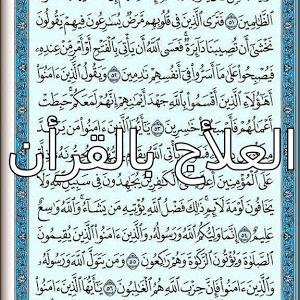 ٱلظَّٰلِمِينَ ٥١ فَتَرَى ٱلَّذِينَ فِى قُلُوبِهِم مَّرَضٌ يُسَٰرِعُونَ فِيهِمْ يَقُولُونَ
نَخْشَىٰٓ أَن تُصِيبَنَا دَآئِرَةٌ فَعَسَى ٱللَّهُ أَن يَأْتِىَ بِٱلْفَتْحِ أَوْ أَمْرٍ مِّنْ عِندِهِۦ
فَيُصْبِحُوا۟ عَلَىٰ مَآ أَسَرُّوا۟ فِىٓ أَنفُسِهِمْ نَٰدِمِينَ ٥٢ وَيَقُولُ ٱلَّذِينَ ءَامَنُوٓا۟
أَهَٰٓؤُلَآءِ ٱلَّذِينَ أَقْسَمُوا۟ بِٱللَّهِ جَهْدَ أَيْمَٰنِهِمْ إِنَّهُمْ لَمَعَكُمْ حَبِطَتْ
أَعْمَٰلُهُمْ فَأَصْبَحُوا۟ خَٰسِرِينَ ٥٣ يَٰٓأَيُّهَا ٱلَّذِينَ ءَامَنُوا۟ مَن يَرْتَدَّ
العلأج بالقرأن
عَلَى ٱلْمُؤْمِنِينَ أَعِزَّةٍ عَلَى ٱلْكَٰفِرِينَ يُجَٰهِدُونَ فِى سَبِيلِ ٱللَّهِ وَلَا
يَخَافُونَ لَوْمَةَ لَآئِمٍ ذَٰلِكَ فَضْلُ ٱللَّهِ يُؤْتِيهِ مَن يَشَآءُ وَٱللَّهُ وَٰسِعٌ
عَلِيمٌ ٥٤ إِنَّمَا وَلِيُّكُمُ ٱللَّهُ وَرَسُولُهُۥ وَٱلَّذِينَ ءَامَنُوا۟ ٱلَّذِينَ يُقِيمُونَ
ٱلصَّلَوٰةَ وَيُؤْتُونَ ٱلزَّكَوٰةَ وَهُمْ رَٰكِعُونَ ٥٥ وَمَن يَتَوَلَّ ٱللَّهَ وَرَسُولَهُۥ
وَٱلَّذِينَ ءَامَنُوا۟ فَإِنَّ حِزْبَ ٱللَّهِ هُمُ ٱلْغَٰلِبُونَ ٥٦ يَٰٓأَيُّهَا ٱلَّذِينَ ءَامَنُوا۟